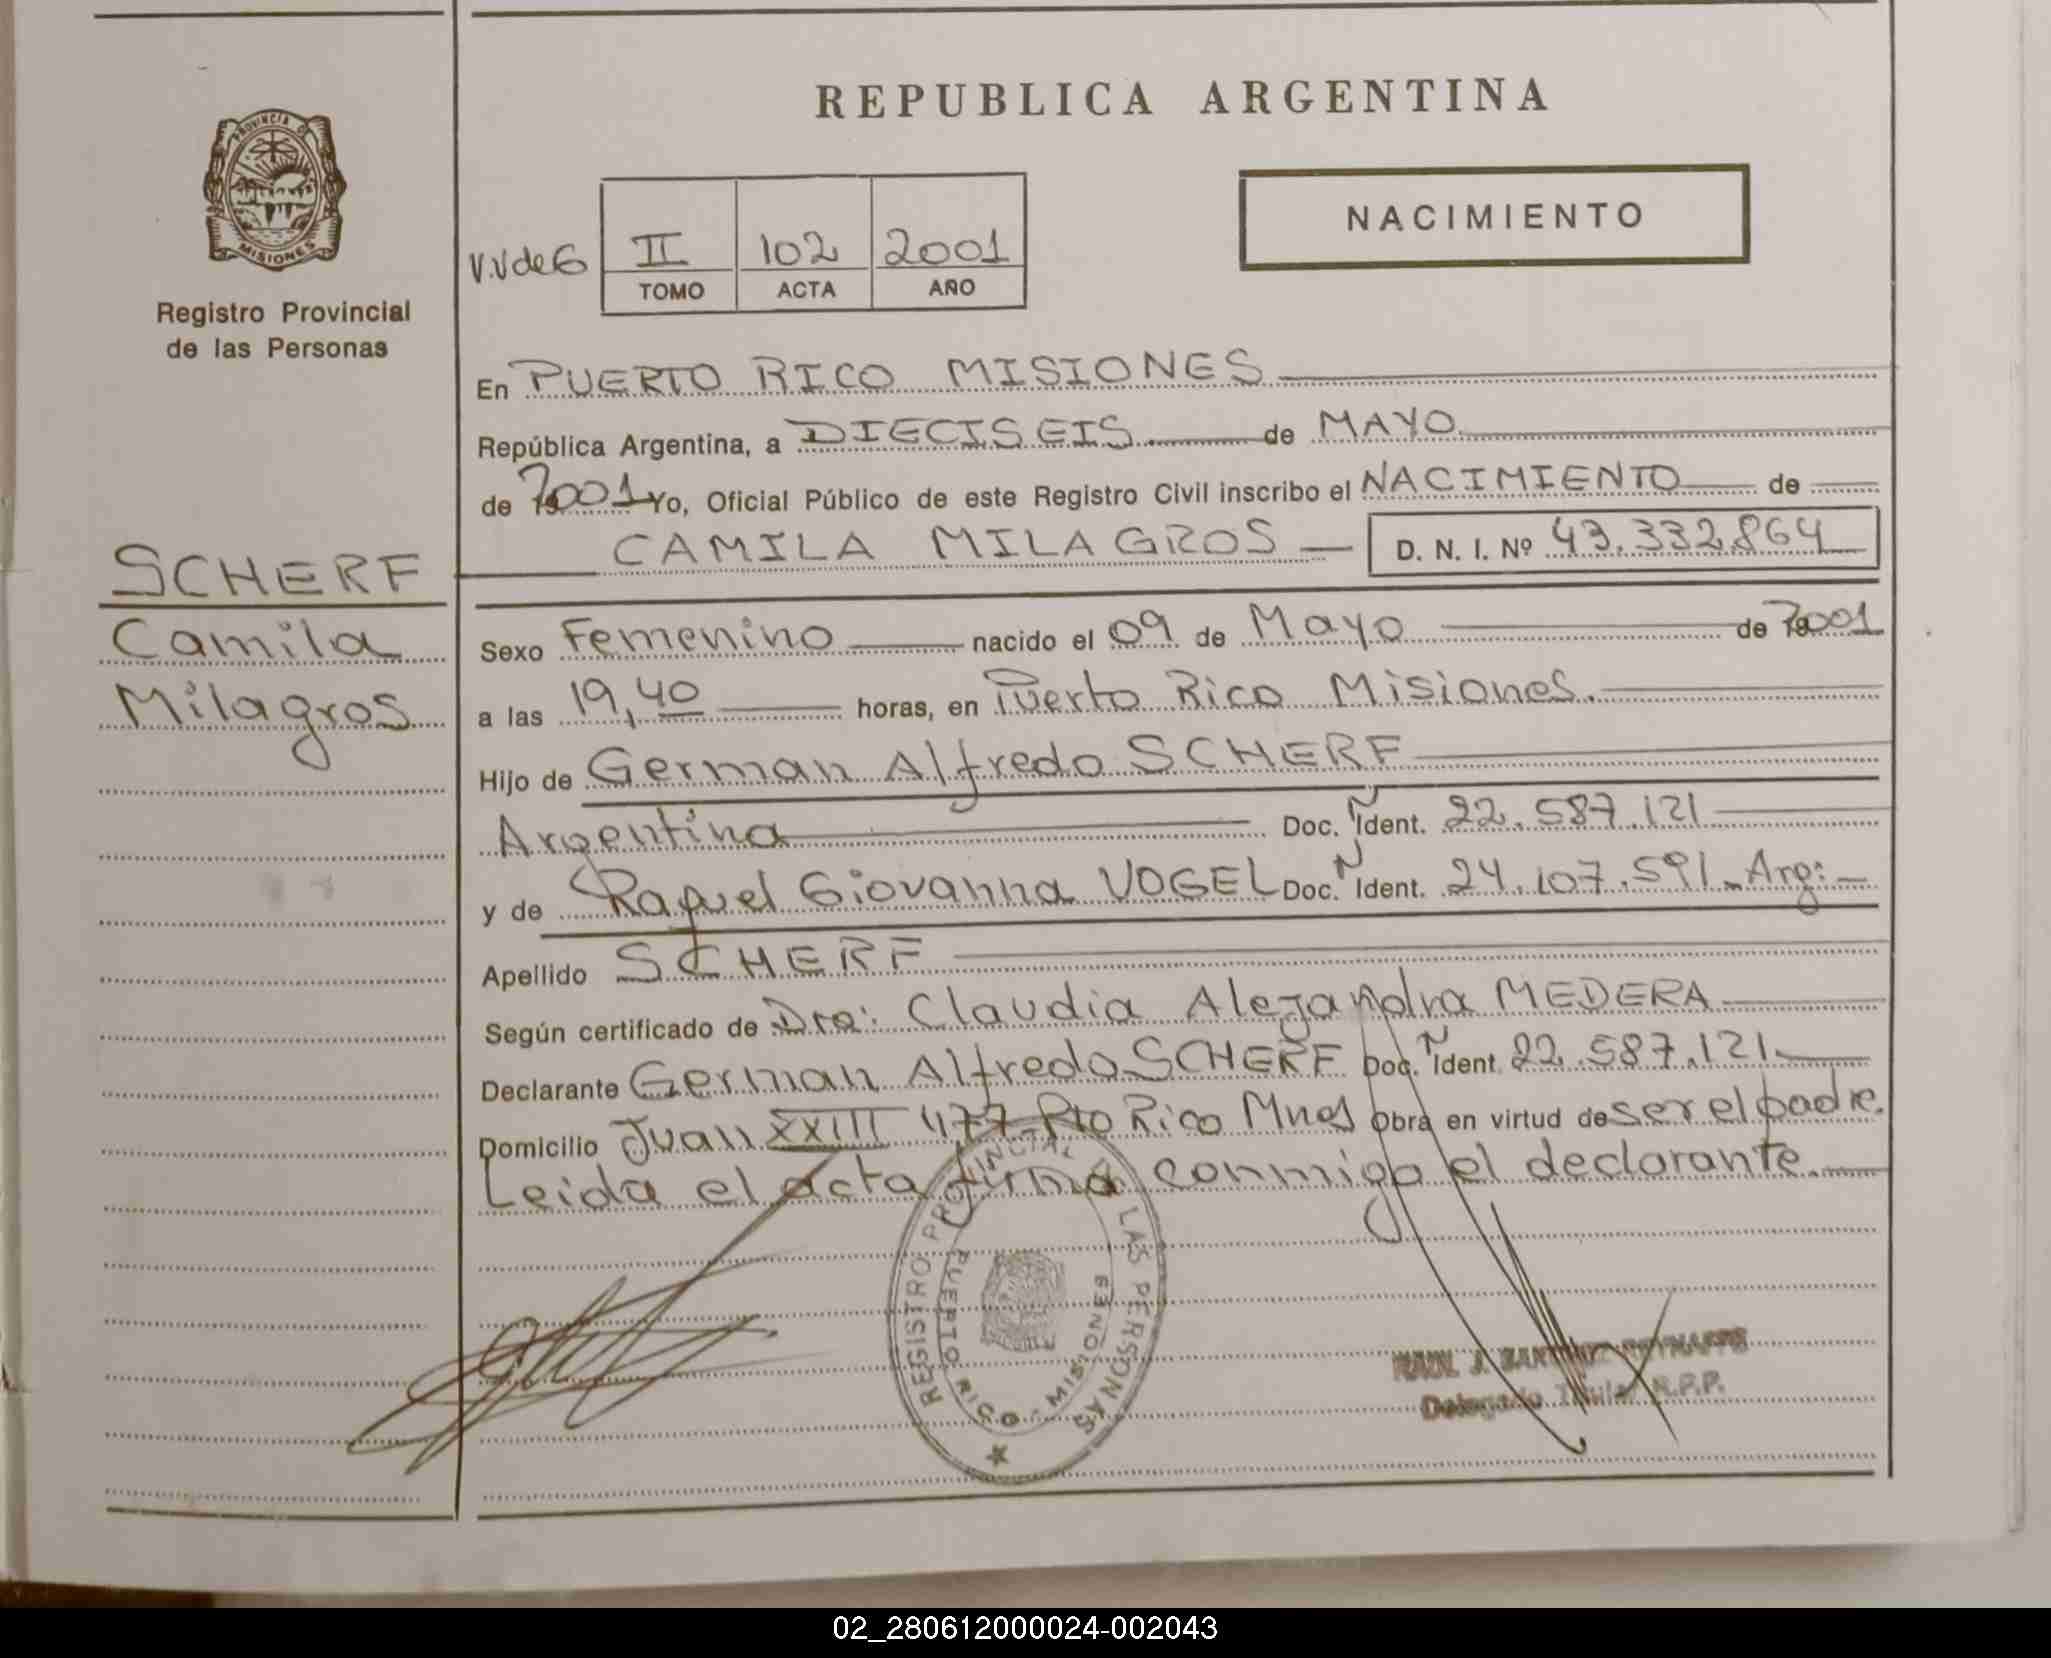 REPUBLICA ARGENTINA
PROVINCIA DE
MISIONES
Registro Provincial
de las Personas
NACIMIENTO
V.V de G II 102 2001
TOMO ACTA AÑO
En PUERTO RICO MISIONES
República Argentina, a DIECISEIS de MAYO
de 2001 Yo, Oficial Público de este Registro Civil inscribo el NACIMIENTO de
CAMILA MILAGROS D. N. I. Nº 43.332.864
SCHERF
Camila
Milagros
Sexo Femenino nacido el 09 de Mayo de 2001
a las 19,40 horas, en Puerto Rico Misiones.
Hijo de German Alfredo SCHERF
Argentina Doc. Ñ Ident. 22.587.121
y de Raquel Giovanna VOGEL Doc. Ñ Ident. 24.107.591 Arg:
Apellido SCHERF
Según certificado de Dra: Claudia Alejandra MEDERA
Declarante German Alfredo SCHERF Doc. Ñ Ident. 22.587.121
Domicilio Juan XXIII 477 Pto Rico Mnes Obra en virtud de ser el padre.
Leida el acta firma conmigo el declarante.
REGISTRO PROVINCIAL DE LAS PERSONAS
PUERTO RICO - MISIONES
RAUL J.
Delegado Titular R.P.P.
02_280612000024-002043